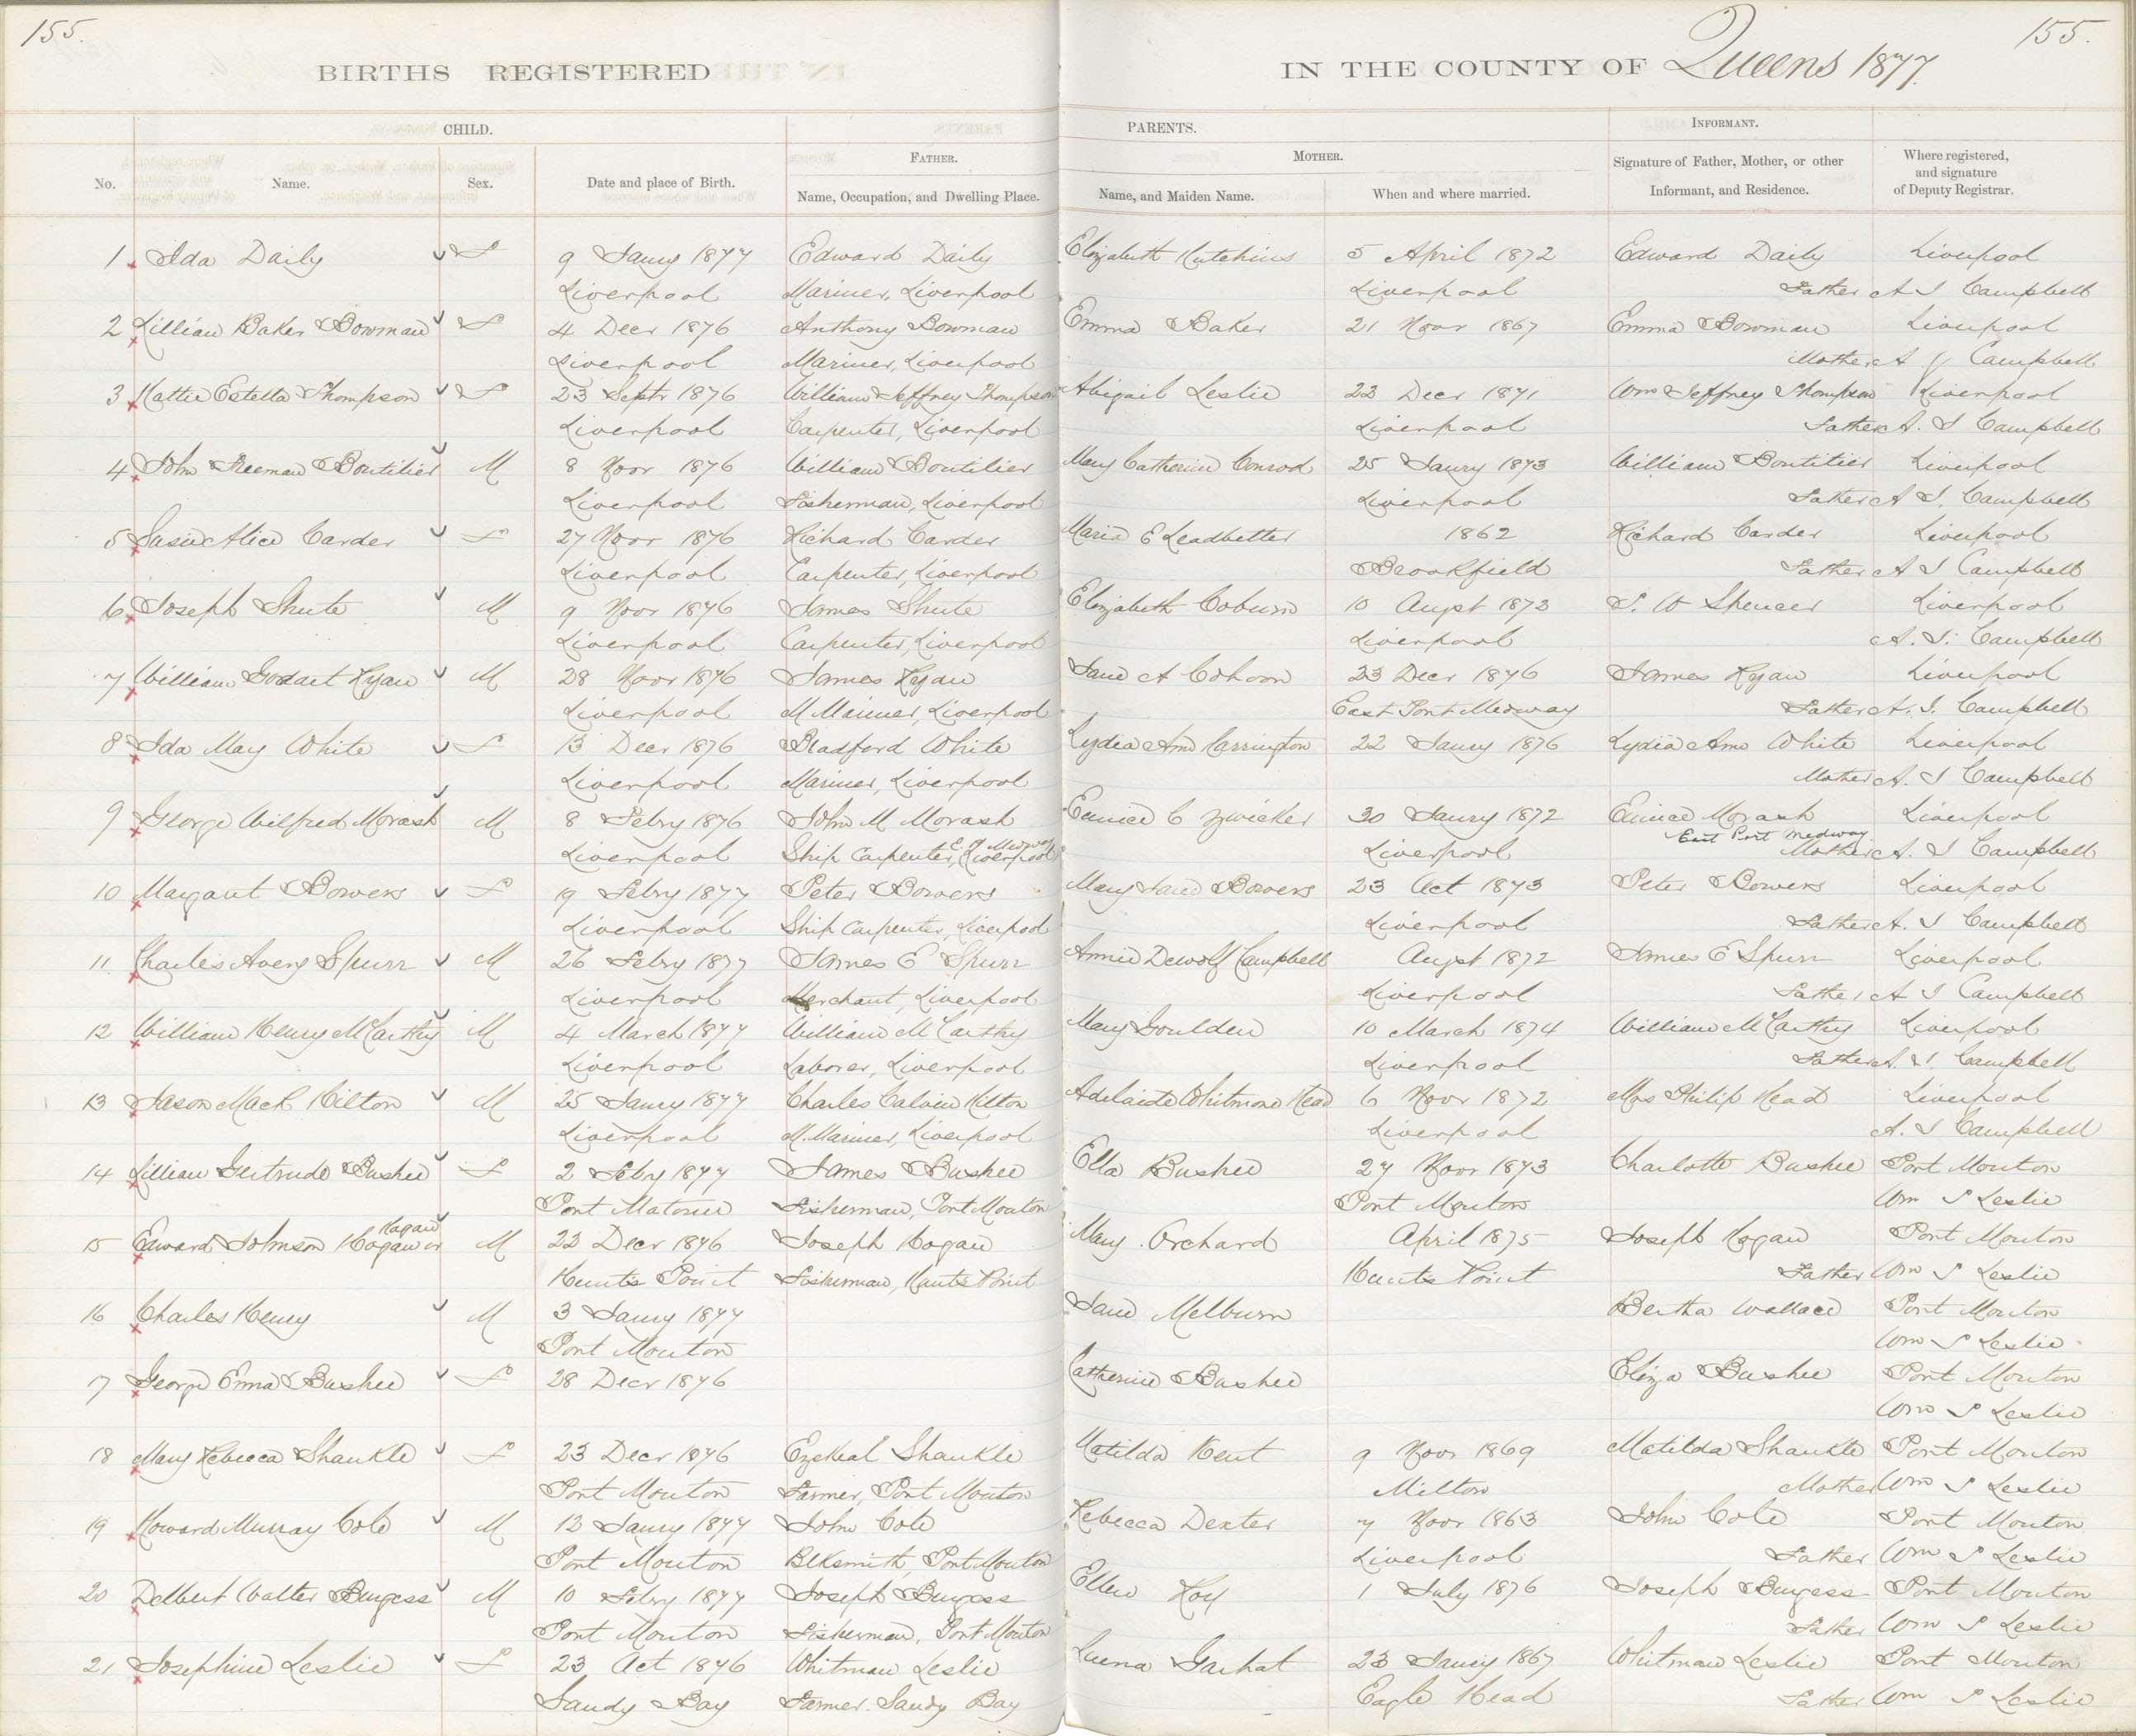 155.
155.
BIRTHS REGISTERED IN THE COUNTY OF Queens 1877.
CHILD. PARENTS. INFORMANT.
FATHER. MOTHER.
No. Name. Sex. Date and place of Birth. Name, Occupation, and Dwelling Place. Name, and Maiden Name. When and where married. Signature of Father, Mother, or other Informant, and Residence. Where registered, and signature of Deputy Registrar.
1 Ida Daily F 9 Jany 1877 Edward Daily Elizabeth Hutchins 5 April 1872 Edward Daily Liverpool
Liverpool Mariner, Liverpool Liverpool Father A J Campbell
2 Lillian Baker Bowman F 4 Decr 1876 Anthony Bowman Emma Baker 21 Novr 1867 Emma Bowman Liverpool
Liverpool Mariner, Liverpool Mother A J Campbell
3 Hattie Estella Thompson F 23 Septr 1876 William Jeffrey Thompson Abigail Leslie 22 Decr 1871 Wm Jeffrey Thompson Liverpool
Liverpool Carpenter, Liverpool Liverpool Father A. J Campbell
4 John Freeman Boutilier M 8 Novr 1876 William Boutilier Mary Catherine Conrod 25 Jany 1873 William Boutilier Liverpool
Liverpool Fisherman, Liverpool Liverpool Father A J. Campbell
5 Susie Alice Carder F 27 Novr 1876 Richard Carder Maria E Leadbetter 1862 Richard Carder Liverpool
Liverpool Carpenter, Liverpool Brookfield Father A J Campbell
6 Joseph Shute M 9 Novr 1876 James Shute Elizabeth Coburn 10 Augst 1872 J. W Spencer Liverpool
Liverpool Carpenter, Liverpool Liverpool A. J. Campbell
7 William Godart Ryan M 28 Novr 1876 James Ryan Jane A Cohoon 23 Decr 1876 James Ryan Liverpool
Liverpool M Mariner, Liverpool East Port Medway Father A. J. Campbell
8 Ida May White F 13 Decr 1876 Bradford White Lydia Ann Carrington 22 Jany 1876 Lydia Ann White Liverpool
Liverpool Mariner, Liverpool Mother A. J Campbell
9 George Wilfred Morash M 8 Febry 1876 John M Morash Eunice C Zwicker 30 Jany 1872 Eunice Morash Liverpool
E. P Medway East Port Medway
Liverpool Ship Carpenter, (Liverpool) Liverpool Mother A. J Campbell
10 Margaret Bowers F 19 Febry 1877 Peter Bowers Mary Jane Bowers 23 Oct 1873 Peter Bowers Liverpool
Liverpool Ship Carpenter, Liverpool Liverpool Father A. J Campbell
11 Charles Avery Spurr M 26 Febry 1877 James E Spurr Annie Dewolf Campbell Augst 1872 James E Spurr Liverpool
Liverpool Merchant, Liverpool Liverpool Father A J Campbell
12 William Henry McCarthy M 4 March 1877 William McCarthy Mary Goulden 10 March 1874 William McCarthy Liverpool
Liverpool Laborer, Liverpool Liverpool Father A. J. Campbell
13 Jason Mack Hilton M 25 Jany 1877 Charles Calvin Hilton Adelaide Whitmore Head 6 Novr 1872 Mrs Philip Head Liverpool
Liverpool M. Mariner, Liverpool Liverpool A. J Campbell
14 Lillian Gertrude Bushee F 2 Febry 1877 James Bushee Ella Bushee 27 Novr 1873 Charlotte Bushee Port Mouton
Port Matoun Fisherman, Port Mouton Port Mouton Wm S Leslie
Hagan
15 Edward Johnson Hogan or M 23 Decr 1876 Joseph Hogan Mary Orchard April 1875 Joseph Hogan Port Mouton
Hunts Point Fisherman, Hunts Point Hunts Point Father Wm S Leslie
16 Charles Henry M 3 Jany 1877 Jane Melburn Bertha Wallace Port Mouton
Port Mouton Wm S Leslie
17 George Enna Bushee F 28 Decr 1876 Catherine Bushee Eliza Bushee Port Mouton
Wm S Leslie
18 Mary Rebecca Shankle F 23 Decr 1876 Ezekeal Shankle Matilda Kent 9 Novr 1869 Matilda Shankle Port Mouton
Port Mouton Farmer, Port Mouton Milton Mother Wm S Leslie
19 Howard Murray Cole M 12 Jany 1877 John Cole Rebecca Dexter 7 Novr 1863 John Cole Port Mouton
Port Mouton Blksmith, Port Mouton Liverpool Father Wm S Leslie
20 Delbert Walter Burgess M 10 Febry 1877 Joseph Burgess Ellen Roy 1 July 1876 Joseph Burgess Port Mouton
Port Mouton Fisherman, Port Mouton Father Wm S Leslie
21 Josephine Leslie F 23 Oct 1876 Whitman Leslie Luena Garhat 23 Jany 1867 Whitman Leslie Port Mouton
Sandy Bay Farmer. Sandy Bay Eagle Head Father Wm S Leslie